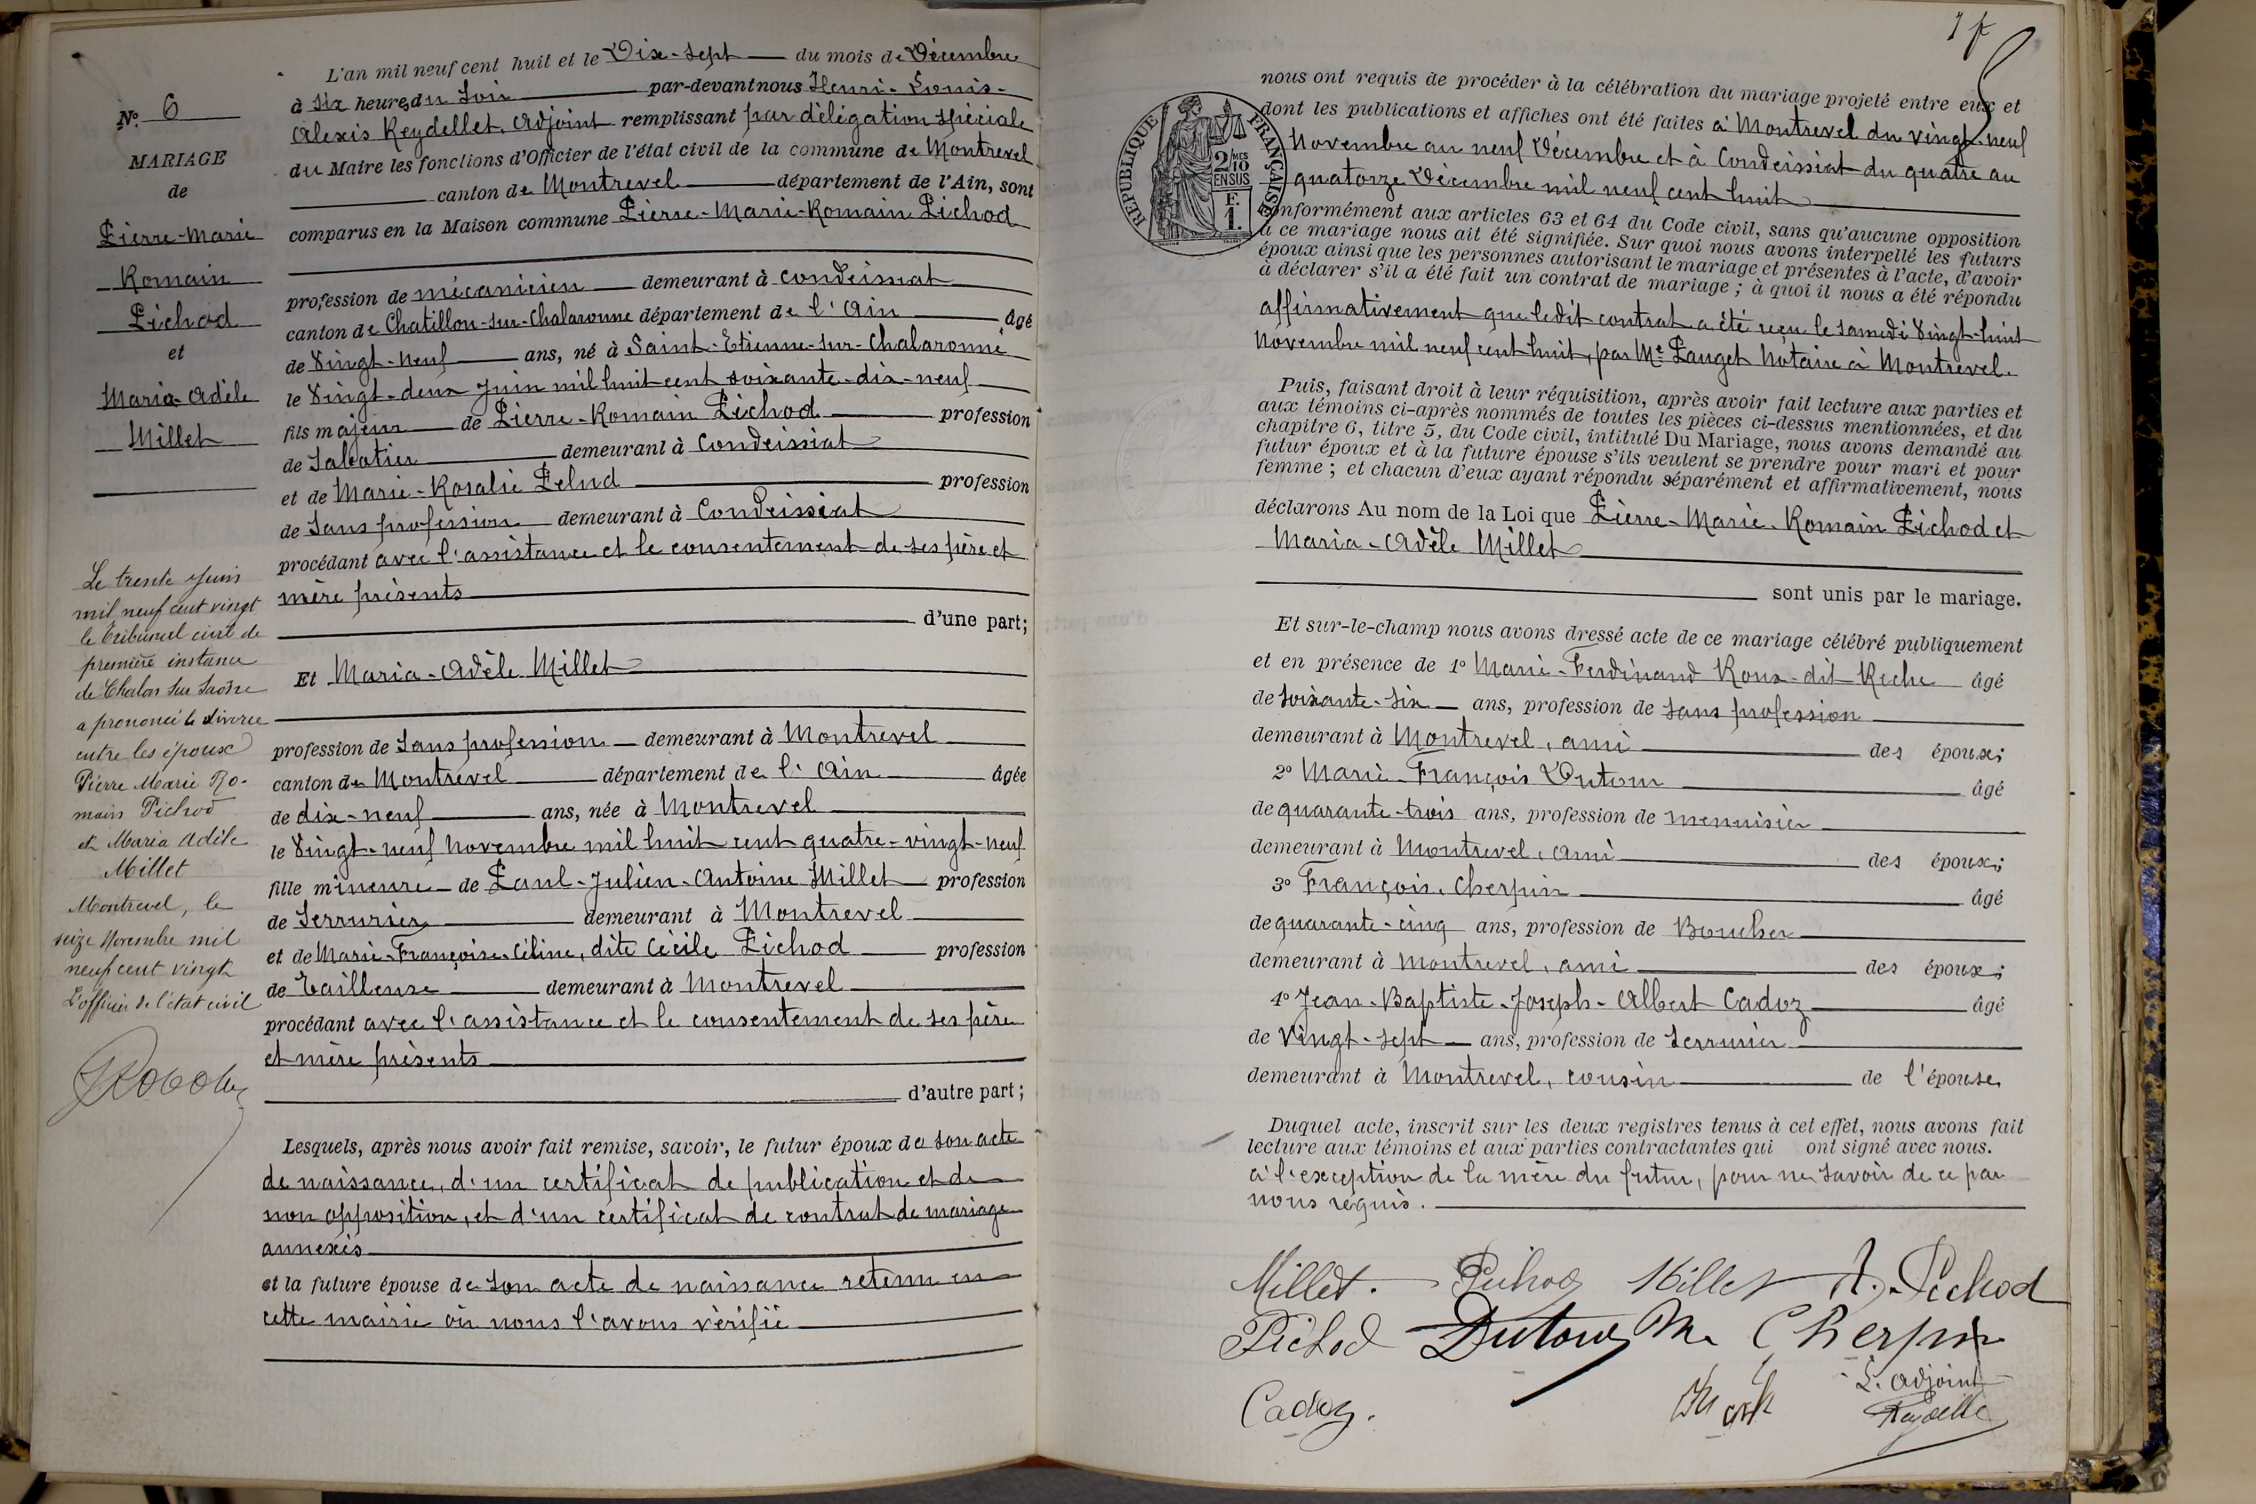 L'an mil neuf cent huit et le Dix-sept du mois de Décembre
à six heures du soir par-devant nous Henri-Louis-
Alexis Reydellet, Adjoint remplissant par délégation spéciale
du Maire les fonctions d'Officier de l'état civil de la commune de Montrevel
canton de Montrevel département de l'Ain, sont
comparus en la Maison commune Pierre-Marie-Romain Pichod
profession de mécanicien demeurant à Condeissiat
canton de Chatillon-sur-Chalaronne département de l'Ain âgé
de Vingt-neuf ans, né à Saint-Etienne-sur-Chalaronne
le Vingt-deux Juin mil huit cent soixante-dix-neuf
fils majeur de Pierre-Romain Pichod profession
de Sabotier demeurant à Condeissiat
et de Marie-Rosalie Pelud profession
de Sans profession demeurant à Condeissiat
procédant avec l'assistance et le consentement de ses père et
mère présents
d'une part;
Et Maria-Adèle Millet
profession de Sans profession demeurant à Montrevel
canton de Montrevel département de l'Ain âgée
de dix-neuf ans, née à Montrevel
le Vingt-neuf Novembre mil huit cent quatre-vingt-neuf
fille mineure de Paul-Julien-Antoine Millet profession
de Serrurier demeurant à Montrevel
et de Marie-Françoise-Céline, dite Cécile Pichod profession
de Tailleuse demeurant à Montrevel
procédant avec l'assistance et le consentement de ses père
et mère présents
d'autre part;
Lesquels, après nous avoir fait remise, savoir, le futur époux de son acte
de naissance, d'un certificat de publication et de
non opposition, et d'un certificat de contrat de mariage
annexés
et la future épouse de son acte de naissance retenu en
cette mairie où nous l'avons vérifié
No. 6
MARIAGE
de
Pierre-Marie
Romain
Pichod
et
Maria-Adèle
Millet
Le trente Juin
mil neuf cent vingt
le tribunal civil de
première instance
de Chalon sur Saône
a prononcé le divorce
entre les époux
Pierre Marie Ro-
main Pichod
et Maria Adèle
Millet
Montrevel, le
seize Novembre mil
neuf cent vingt
L'officier de l'état civil
RÉPUBLIQUE FRANÇAISE
2/10
EN SUS
F.
1.
nous ont requis de procéder à la célébration du mariage projeté entre eux et
dont les publications et affiches ont été faites à Montrevel du vingt-neuf
Novembre au neuf Décembre et à Condeissiat du quatre au
quatorze Décembre mil neuf cent huit
conformément aux articles 63 et 64 du Code civil, sans qu'aucune opposition
à ce mariage nous ait été signifiée. Sur quoi nous avons interpellé les futurs
époux ainsi que les personnes autorisant le mariage et présentes à l'acte, d'avoir
à déclarer s'il a été fait un contrat de mariage; à quoi il nous a été répondu
affirmativement que ledit contrat a été reçu le samedi Vingt-huit
Novembre mil neuf cent huit, par Me Pauget Notaire à Montrevel.
Puis, faisant droit à leur réquisition, après avoir fait lecture aux parties et
aux témoins ci-après nommés de toutes les pièces ci-dessus mentionnées, et du
chapitre 6, titre 5, du Code civil, intitulé Du Mariage, nous avons demandé au
futur époux et à la future épouse s'ils veulent se prendre pour mari et pour
femme; et chacun d'eux ayant répondu séparément et affirmativement, nous
déclarons Au nom de la Loi que Pierre-Marie-Romain Pichod et
Maria-Adèle Millet
sont unis par le mariage.
Et sur-le-champ nous avons dressé acte de ce mariage célébré publiquement
et en présence de 1º Marie-Ferdinand Roux-dit Riche âgé
de soixante-six ans, profession de sans profession
demeurant à Montrevel, ami des époux;
2º Marie-François Dutour âgé
de quarante-trois ans, profession de menuisier
demeurant à Montrevel, ami des époux;
3º François Cherpin âgé
de quarante-cinq ans, profession de Boucher
demeurant à Montrevel, ami des époux;
4º Jean-Baptiste-Joseph-Albert Cadoz âgé
de Vingt-sept ans, profession de Serrurier
demeurant à Montrevel, cousin de l'épouse
Duquel acte, inscrit sur les deux registres tenus à cet effet, nous avons fait
lecture aux témoins et aux parties contractantes qui ont signé avec nous.
à l'exception de la mère du futur, pour ne savoir de ce par
nous requis.
Millet. Pichod Millet A. Pichod
Pichod Dutour M. Cherpin
Cadoz.
L'adjoint
Reydellet